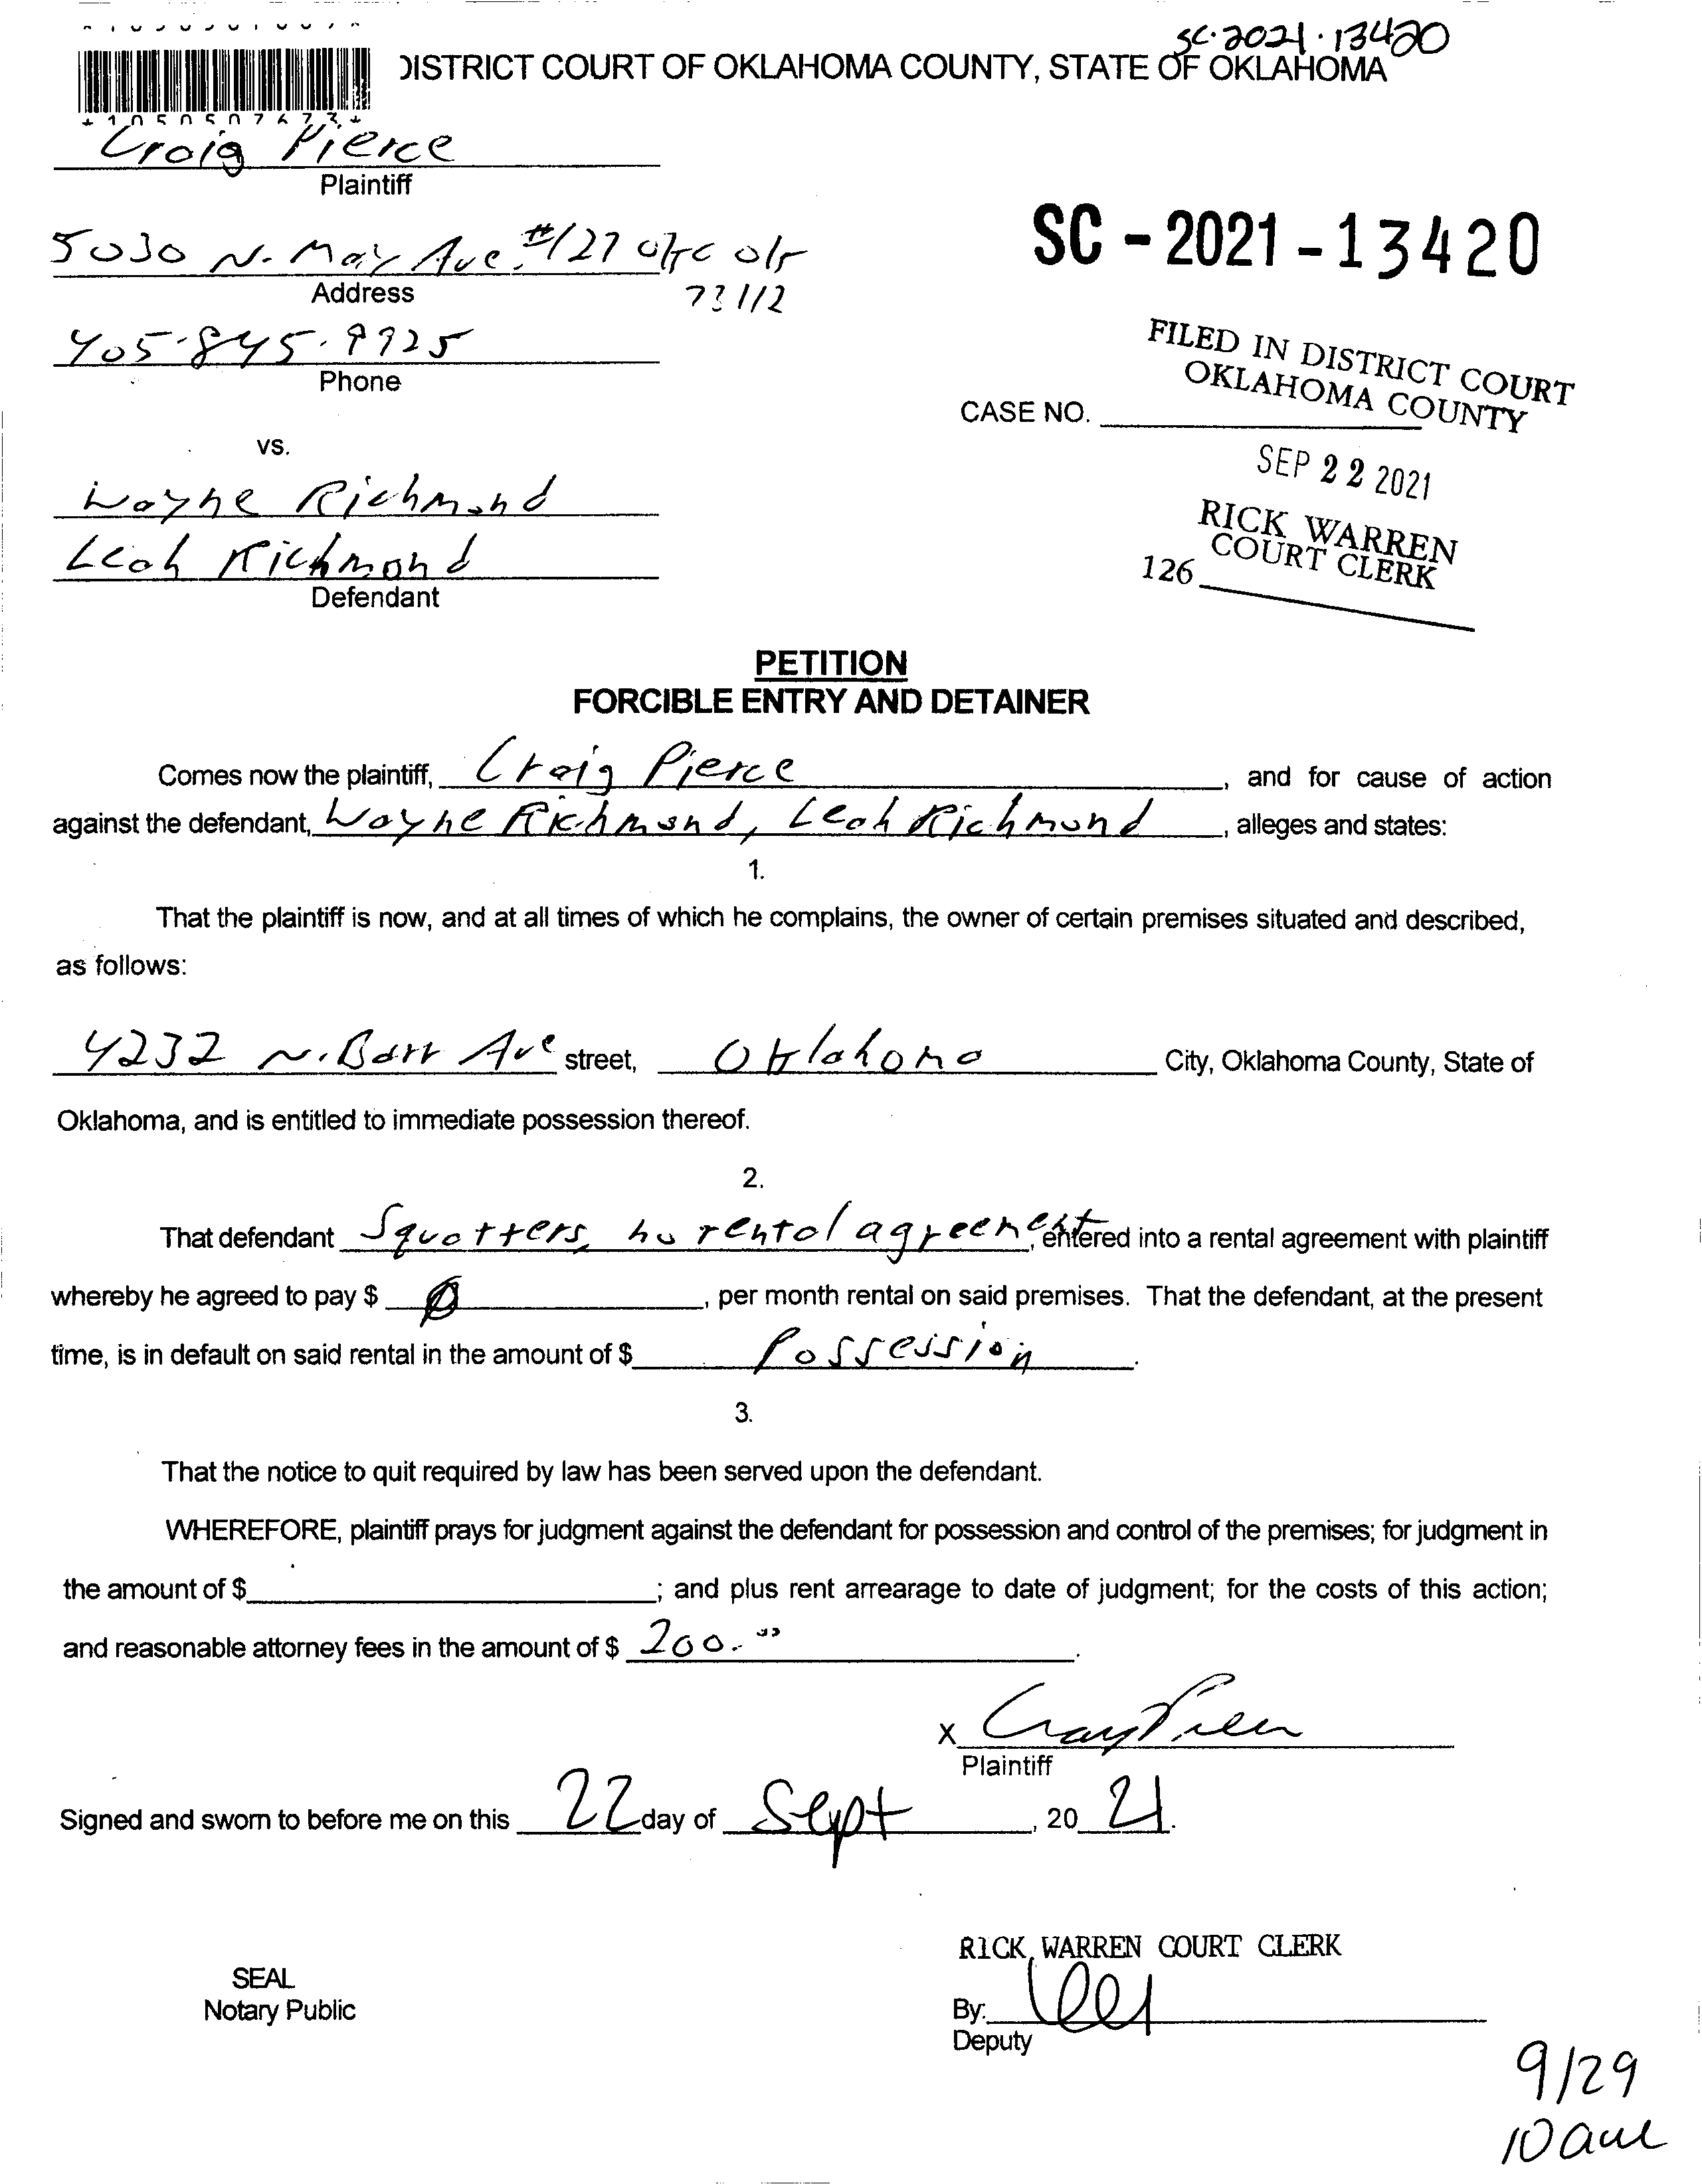 SC-2021-13420
DISTRICT COURT OF OKLAHOMA COUNTY, STATE OF OKLAHOMA
*1050507673*
Craig Pierce
Plaintiff
5030 N. May Ave. #127 okc ok
73112
Address
SC-2021-13420
405-845-9925
Phone
FILED IN DISTRICT COURT
OKLAHOMA COUNTY
CASE NO.
vs.
SEP 22 2021
Wayne Richmond
RICK WARREN
COURT CLERK
126
Leah Richmond
Defendant
PETITION
FORCIBLE ENTRY AND DETAINER
Comes now the plaintiff, Craig Pierce, and for cause of action
against the defendant, Wayne Richmond, Leah Richmond, alleges and states:
1.
That the plaintiff is now, and at all times of which he complains, the owner of certain premises situated and described,
as follows:
4232 N. Barr Ave street, Oklahoma City, Oklahoma County, State of
Oklahoma, and is entitled to immediate possession thereof.
2.
That defendant Squatters, no rental agreement, entered into a rental agreement with plaintiff
whereby he agreed to pay $ 0, per month rental on said premises. That the defendant, at the present
time, is in default on said rental in the amount of $ Possession.
3.
That the notice to quit required by law has been served upon the defendant.
WHEREFORE, plaintiff prays for judgment against the defendant for possession and control of the premises; for judgment in
the amount of $; and plus rent arrearage to date of judgment; for the costs of this action;
and reasonable attorney fees in the amount of $ 200.00.
x Craig Pierce
Plaintiff
Signed and sworn to before me on this 22 day of Sept, 20 21.
RICK WARREN COURT CLERK
SEAL
Notary Public
By:
Deputy
9/29
10 am